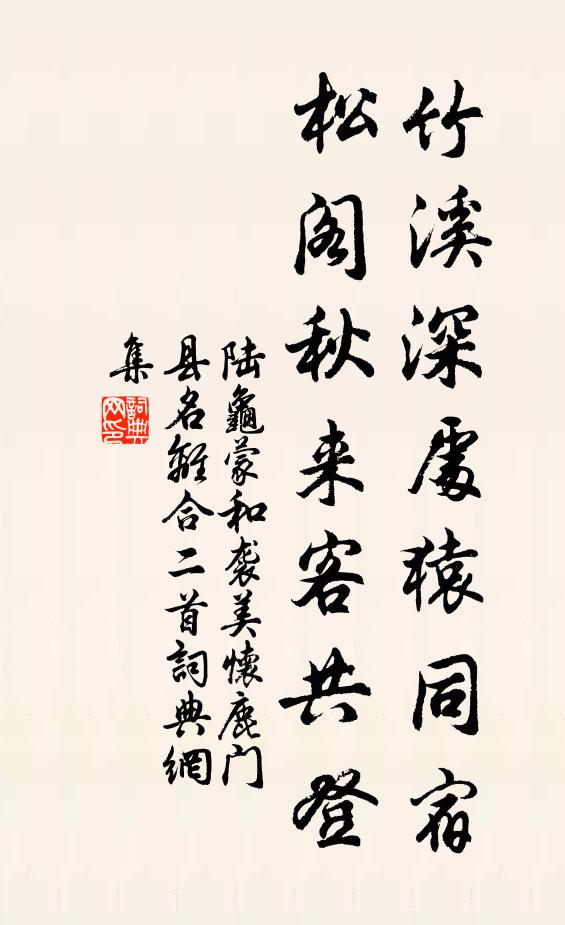 竹溪深處猿同宿
松阁秋来客共登
陆龜蒙和袭美懷鹿门
县名離合二首詞典網
集
詞典
网印